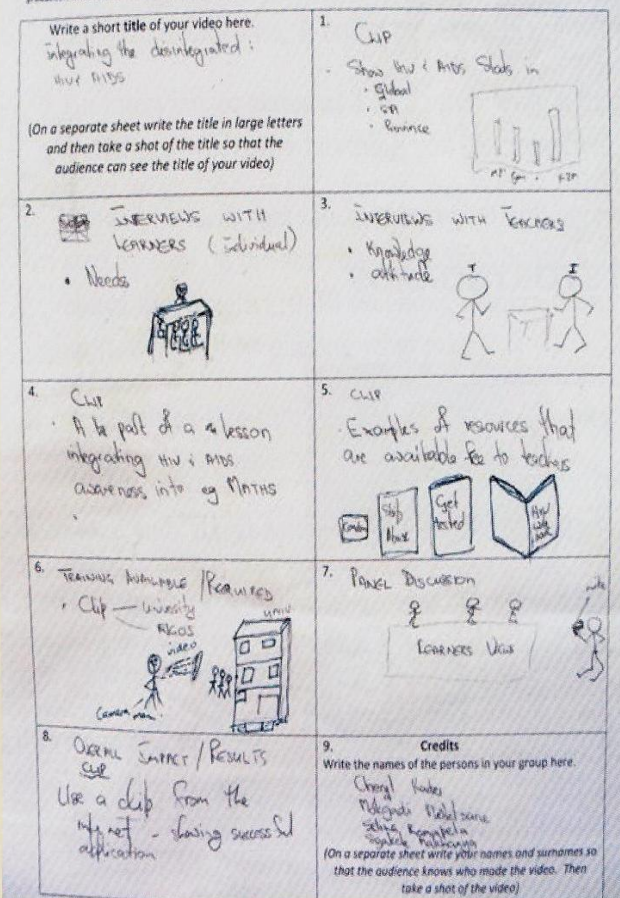 Write a short title of your video here.
integrating the desintegrated :
HIV & AIDS
(On a separate sheet write the title in large letters
and then take a shot of the title so that the
audience can see the title of your video)
1.
CLIP
Show HIV & AIDS Stats in
• Global
• SA
• Province
2.
INTERVIEWS WITH
LEARNERS (individual)
• Needs
3.
INTERVIEWS WITH TEACHERS
• Knowledge
• attitude
T
I
4.
CLIP
part of a lesson
integrating HIV & AIDS
awareness into eg MATHS
5.
CLIP
Examples of resources that
are available to teachers
Stop
Abuse
Get
tested
6.
TRAINING AVAILABLE / REQUIRED
• Clip
NGOS
video
UNIV
Camera man
7.
PANEL DISCUSSION
LEARNERS VIEW
8.
OVERALL IMPACT / RESULTS
CLIP
Use a clip from the
internet - showing successful
application
9.
Credits
Write the names of the persons in your group here.
Cheryl
(On a separate sheet write your names and surnames so
that the audience knows who made the video. Then
take a shot of the video)